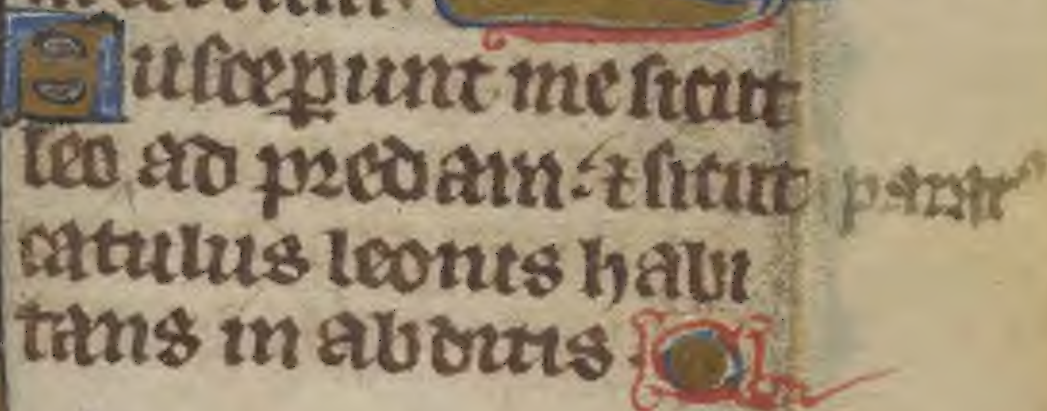 Susceꝑunt me sicut
leo ad predam: ⁊ sicut parat᷒
catulus leonis habi
tans in abditis